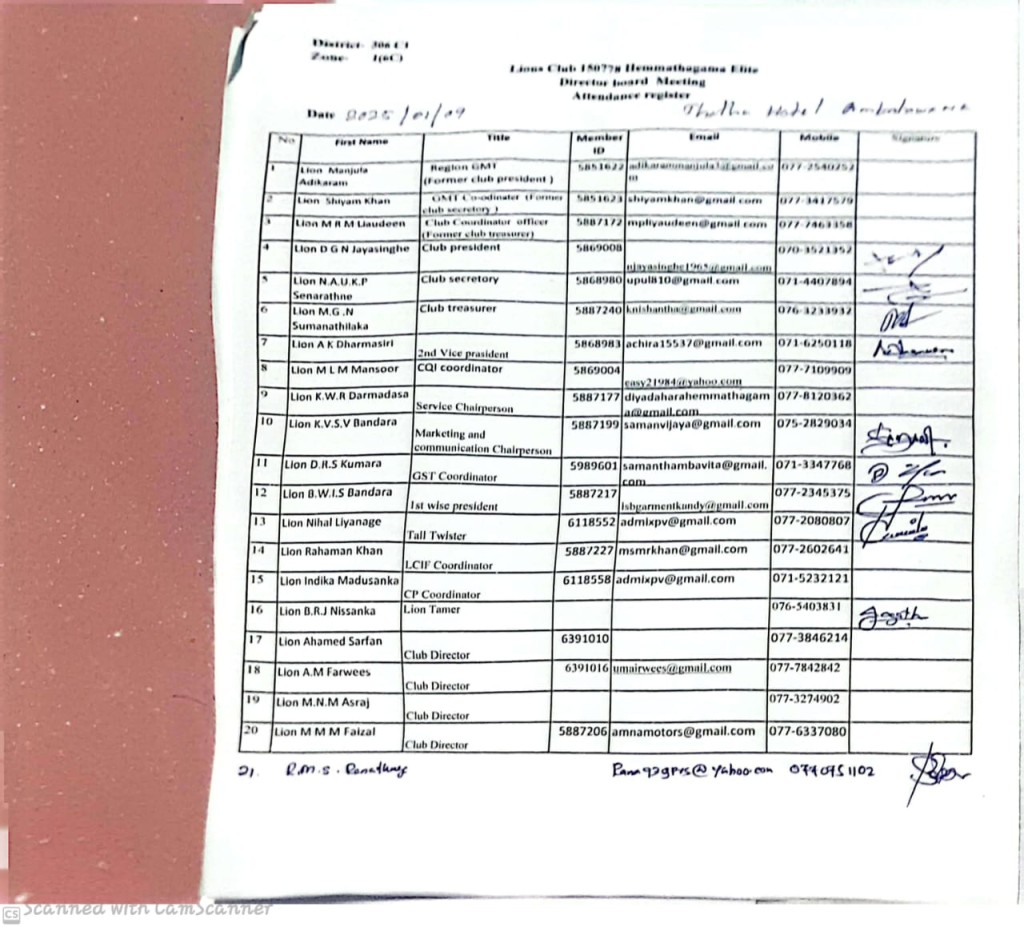 District- 306 C1
Zone- 1(6C)
Lions Club 150778 Hemmathagama Elite
Director board Meeting
Attendance register
Date 2025/01/09 Hotel
No First Name Title Member ID Email Mobile Signature
1 Lion Manjula Adikaram Region GMT (Former club president ) 5851622 adikarammanjula1@gmail.com 077-2540252
2 Lion Shiyam Khan GMT Co-odinater (Former club secretory ) 5851623 shiyamkhan@gmail.com 077-3417579
3 Lion M R M Liaudeen Club Coordinator officer (Former club treasurer) 5887172 mpliyaudeen@gmail.com 077-7463358
4 Lion D G N Jayasinghe Club president 5869008 njayasinghe1965@gmail.com 070-3521352
5 Lion N.A.U.K.P Senarathne Club secretory 5868980 upul810@gmail.com 071-4407894
6 Lion M.G .N Sumanathilaka Club treasurer 5887240 knishantha@gmail.com 076-3233932
7 Lion A K Dharmasiri 2nd Vice prasident 5868983 achira15537@gmail.com 071-6250118
8 Lion M L M Mansoor CQI coordinator 5869004 easy21984@yahoo.com 077-7109909
9 Lion K.W.R Darmadasa Service Chairperson 5887177 diyadaharahemmathagama@gmail.com 077-8120362
10 Lion K.V.S.V Bandara Marketing and communication Chairperson 5887199 samanvijaya@gmail.com 075-2829034
11 Lion D.R.S Kumara GST Coordinator 5989601 samanthambavita@gmail.com 071-3347768
12 Lion B.W.I.S Bandara 1st wise president 5887217 isbgarmentkandy@gmail.com 077-2345375
13 Lion Nihal Liyanage Tall Twister 6118552 admixpv@gmail.com 077-2080807
14 Lion Rahaman Khan LCIF Coordinator 5887227 msmrkhan@gmail.com 077-2602641
15 Lion Indika Madusanka CP Coordinator 6118558 admixpv@gmail.com 071-5232121
16 Lion B.R.J Nissanka Lion Tamer 076-5403831
17 Lion Ahamed Sarfan Club Director 6391010 077-3846214
18 Lion A.M Farwees Club Director 6391016 umairwees@gmail.com 077-7842842
19 Lion M.N.M Asraj Club Director 077-3274902
20 Lion M M M Faizal Club Director 5887206 amnamotors@gmail.com 077-6337080
21. R.M.S.
CS Scanned with CamScanner